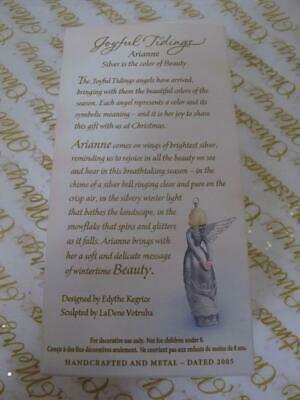 Joyful Tidings
Arianne
Silver is the color of Beauty
The Joyful Tidings angels have arrived,
bringing with them the beautiful colors of the
season. Each angel represents a color and its
symbolic meaning – and it is her joy to share
this gift with us at Christmas.
Arianne comes on wings of brightest silver,
reminding us to rejoice in all the beauty we see
and hear in this breathtaking season – in the
chime of a silver bell ringing clear and pure on the
crisp air, in the silvery winter light
that bathes the landscape, in the
snowflake that spins and glitters
as it falls. Arianne brings with
her a soft and delicate message
of wintertime Beauty.
Designed by Edythe Kegrize
Sculpted by LaDene Votruba
For decorative use only. Not for children under 8.
Conçu à des fins décoratives seulement. Ne convient pas aux enfants de moins de 8 ans.
HANDCRAFTED AND METAL – DATED 2005